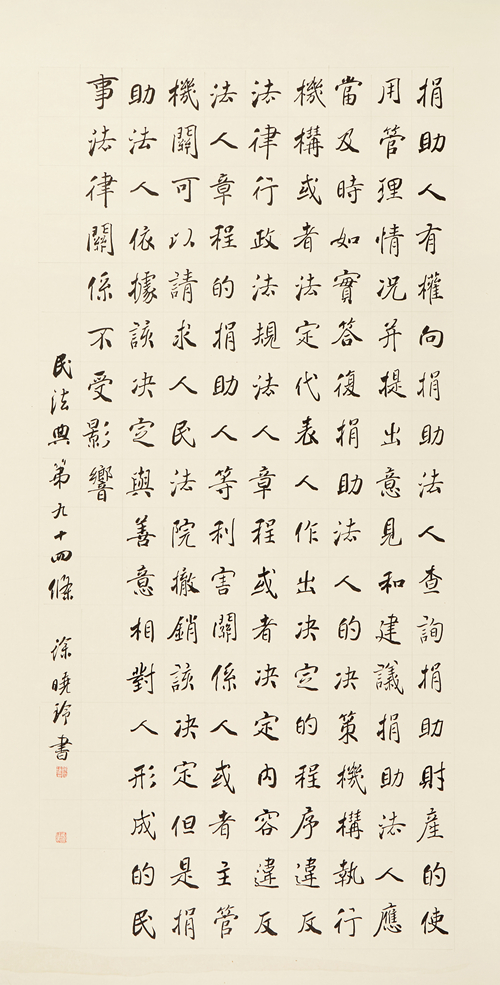 捐助人有權向捐助法人查詢捐助財產的使
用管理情况并提出意見和建議捐助法人應
當及時如實答復捐助法人的决策機構執行
機構或者法定代表人作出决定的程序違反
法律行政法規法人章程或者决定内容違反
法人章程的捐助人等利害關係人或者主管
機關可以請求人民法院撤銷該决定但是捐
助法人依據該决定與善意相對人形成的民
事法律關係不受影響
民法典第九十四條 徐曉玲書